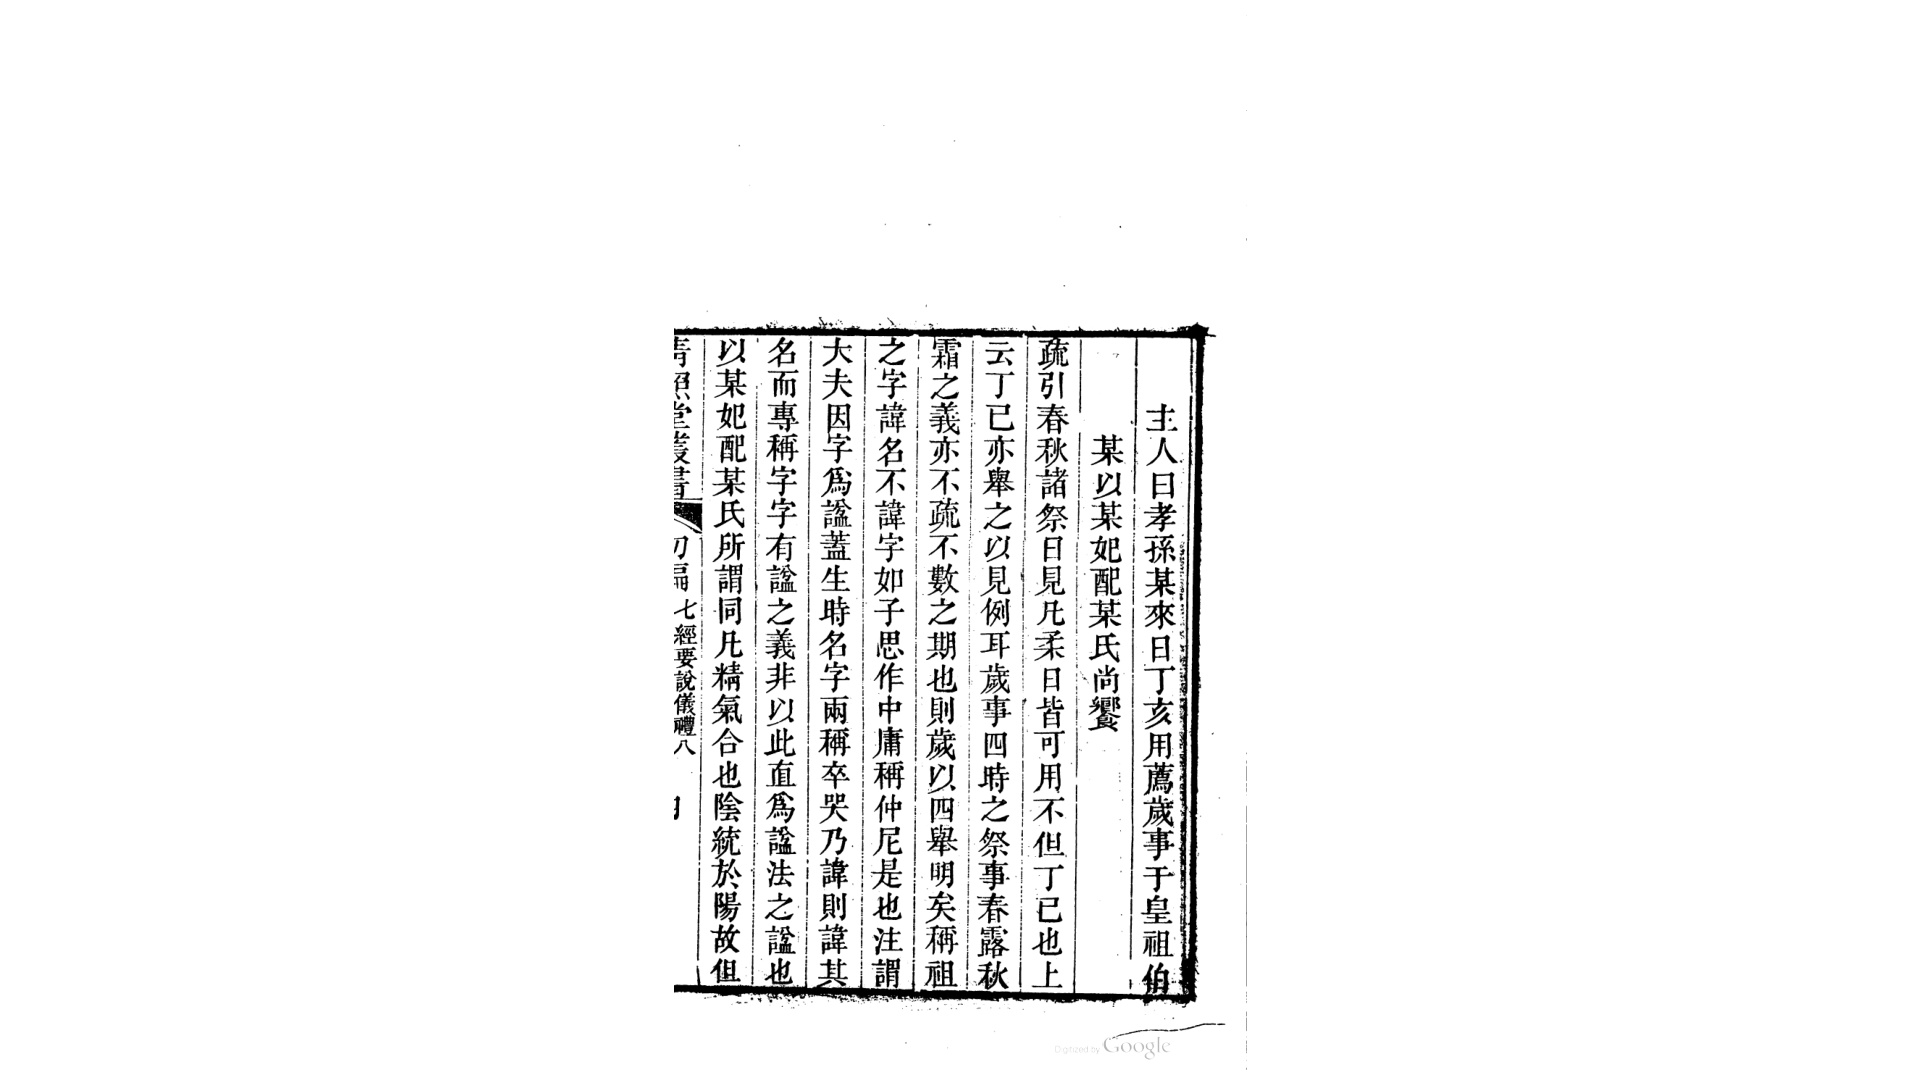 主人曰孝孫某來日丁亥用薦歲事于皇祖伯
某以某妃配某氏尚饗
疏引春秋諸祭日見凡柔日皆可用不但丁已也上
云丁已亦舉之以見例耳歲事四時之祭事春露秋
霜之義亦不疏不數之期也則歲以四舉明矣稱祖
之字諱名不諱字如子思作中庸稱仲尼是也注謂
大夫因字爲諡蓋生時名字兩稱卒哭乃諱則諱其
名而專稱字字有諡之義非以此直爲諡法之諡也
以某妃配某氏所謂同凡精氣合也陰統於陽故但
青照堂叢書 初編 七經要說儀禮八
Digitized by Google